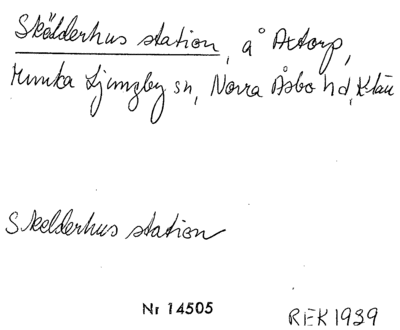 Skälderhus station, å Åstorp,
Munka Ljungby sn, Norra Åsbo hd, Klän
Skelderhus station
Nr 14505
REK 1939